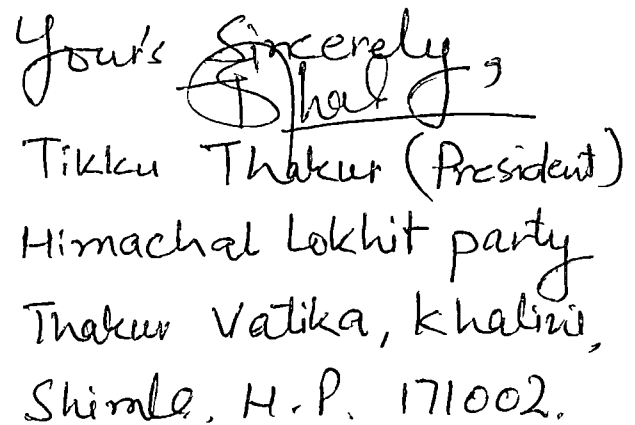 Your's Sincerely,
Tikku Thakur (President)
Himachal Lokhit party
Thakur Vatika, Khalini,
Shimla, H.P. 171002.